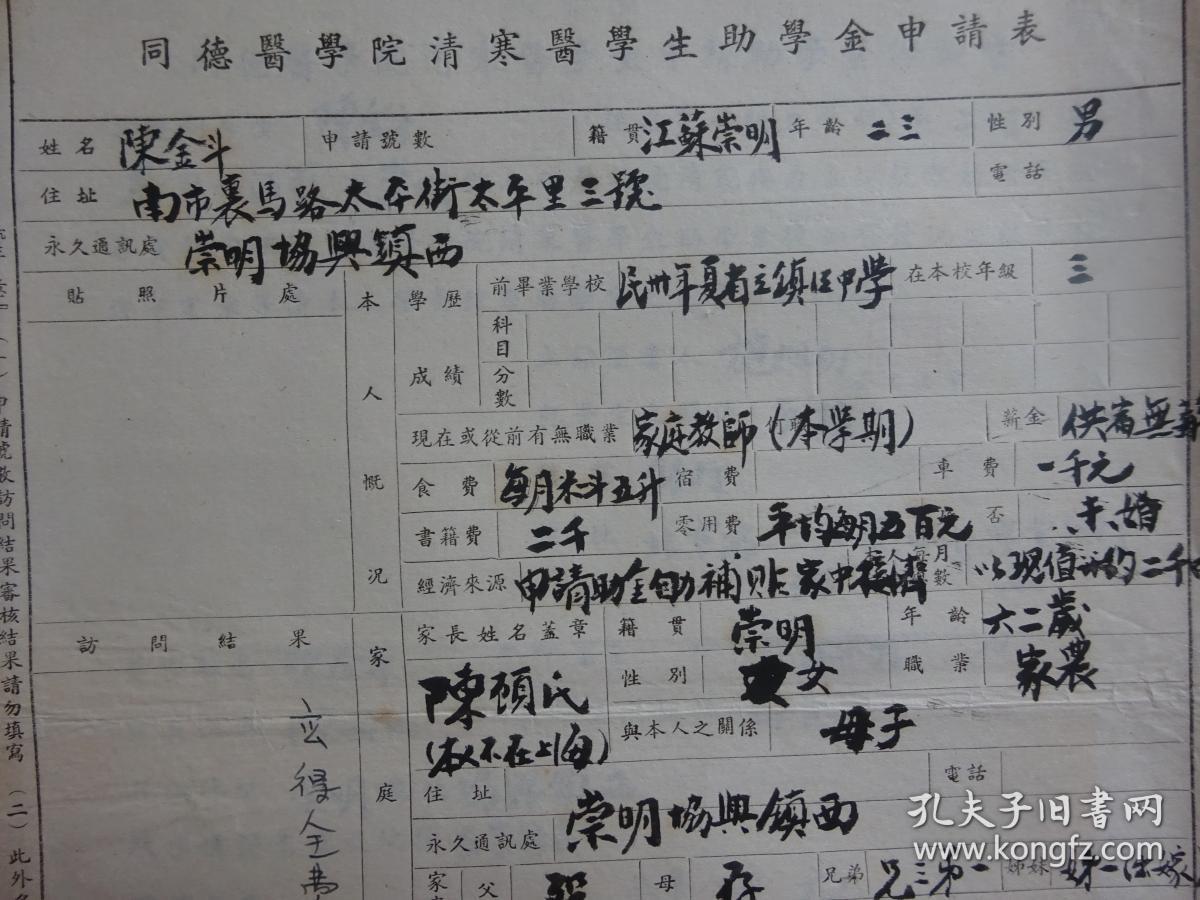 同德醫學院清寒醫學生助學金申請表
姓名 陳金斗 申請號數 籍貫 江蘇崇明 年齡 二三 性別 男
住址 南市裏馬路太平街太平里三號 電話
永久通訊處 崇明協興鎮西
貼照片處 本人概況 學歷 前畢業學校 民卅年夏省立鎮江中學 在本校年級 三
成績 科目
分數
現在或從前有無職業 家庭教師(本學期) 薪金 供膳無薪
食費 每月米斗五升 宿費 車費 一千元
書籍費 二千 零用費 平均每月五百元 否 未婚
經濟來源 申請助金自助補貼家中接濟 本人每月 數 以現值計約二千
訪問結果 家庭 家長姓名蓋章 籍貫 崇明 年齡 六二歲
陳顧氏 性別 女 職業 家農
(本人不在上海) 與本人之關係 母子
住址 崇明協興鎮西 電話
永久通訊處
家 父 歿 母 存 兄弟 兄三弟一 姊妹 妹一
應得全費
(一)申請號數訪問結果審核結果請勿填寫(二)此外
孔夫子旧书网
www.kongfz.com